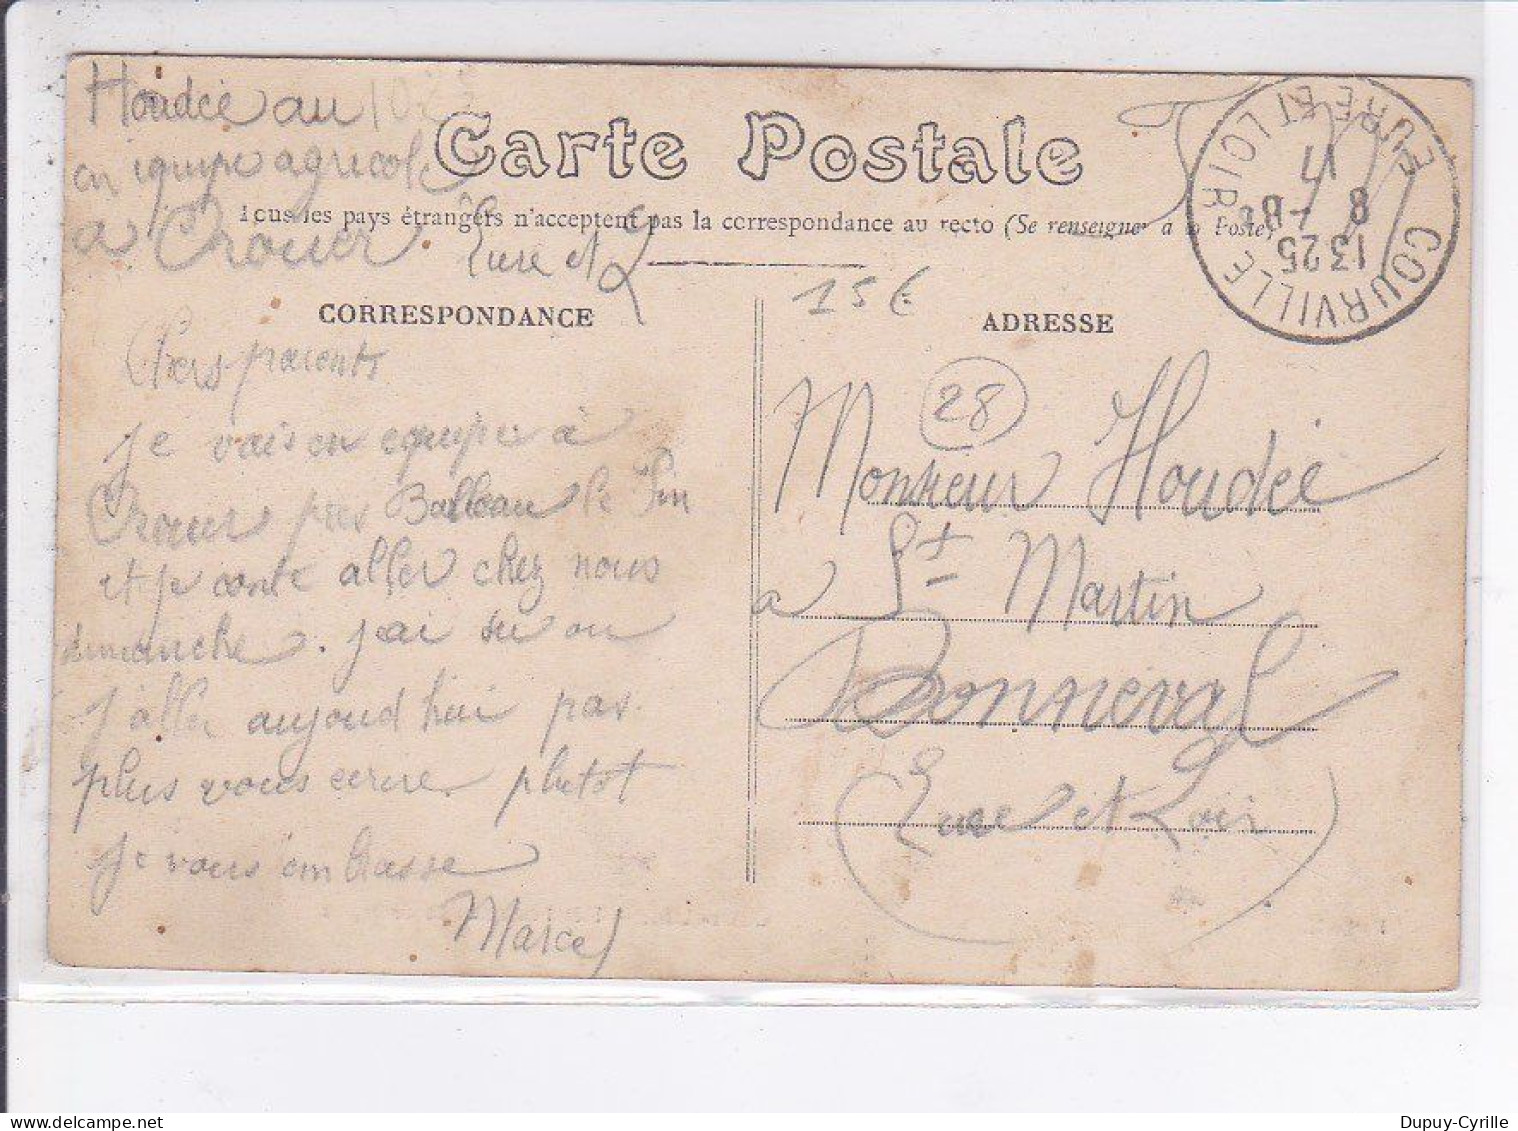 Houdée au 102
en equipe agricole
a Crouer Eure et L
Carte Postale
Tous les pays étrangers n'acceptent pas la correspondance au recto (Se renseigner à la Poste)
COURVILLE
EURE ET LOIR
1325
8 -8
17
CORRESPONDANCE
Chers parents
Je vais en equipe à
Crouer pres Bailleau le Pin
et je conte aller chez nous
dimanche. j'ai su ou
j'aller aujourd'hui pas
plus vous ecrire plutot
Je vous embrasse
Marcel
15€
ADRESSE
28
Monsieur Houdée
a St Martin
Bonneval
(Eure et Loir)
Dupuy-Cyrille